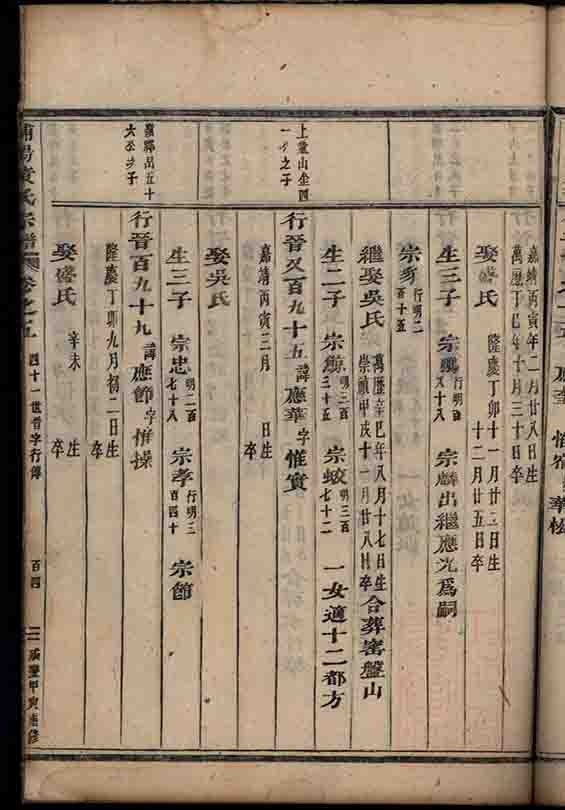 嘉靖丙寅年二月廿八日生
萬歷丁巳年十月三十日卒
娶盛氏
隆慶丁卯十一月廿三日生
十二月廿五日卒
生三子 宗
行明
又十八
宗麟出繼應光爲嗣
宗豸
行明二
百十五
繼娶吳氏
萬歷辛巳年八月十七日生
崇禎甲戌十一月廿八日卒
合葬窑盤山
生二子 宗鯨
明三百
三十五
宗蛟
明三百
七十二
一女適十二都方
上
山
四
一
之子
行晉又百九十五
諱
應華
字
惟實
嘉靖丙寅三月 日生
卒
娶吳氏
生三子 宗忠
明二百
七十八
宗孝
行明三
百四十
宗節
出五十
子
行晉百九十九
諱
應節
字
惟操
隆慶丁卯九月初二日生
卒
娶盛氏
辛未 生
卒
氏宗譜
卷之五
四十一世晉字行傳
百四
咸豐甲寅重修